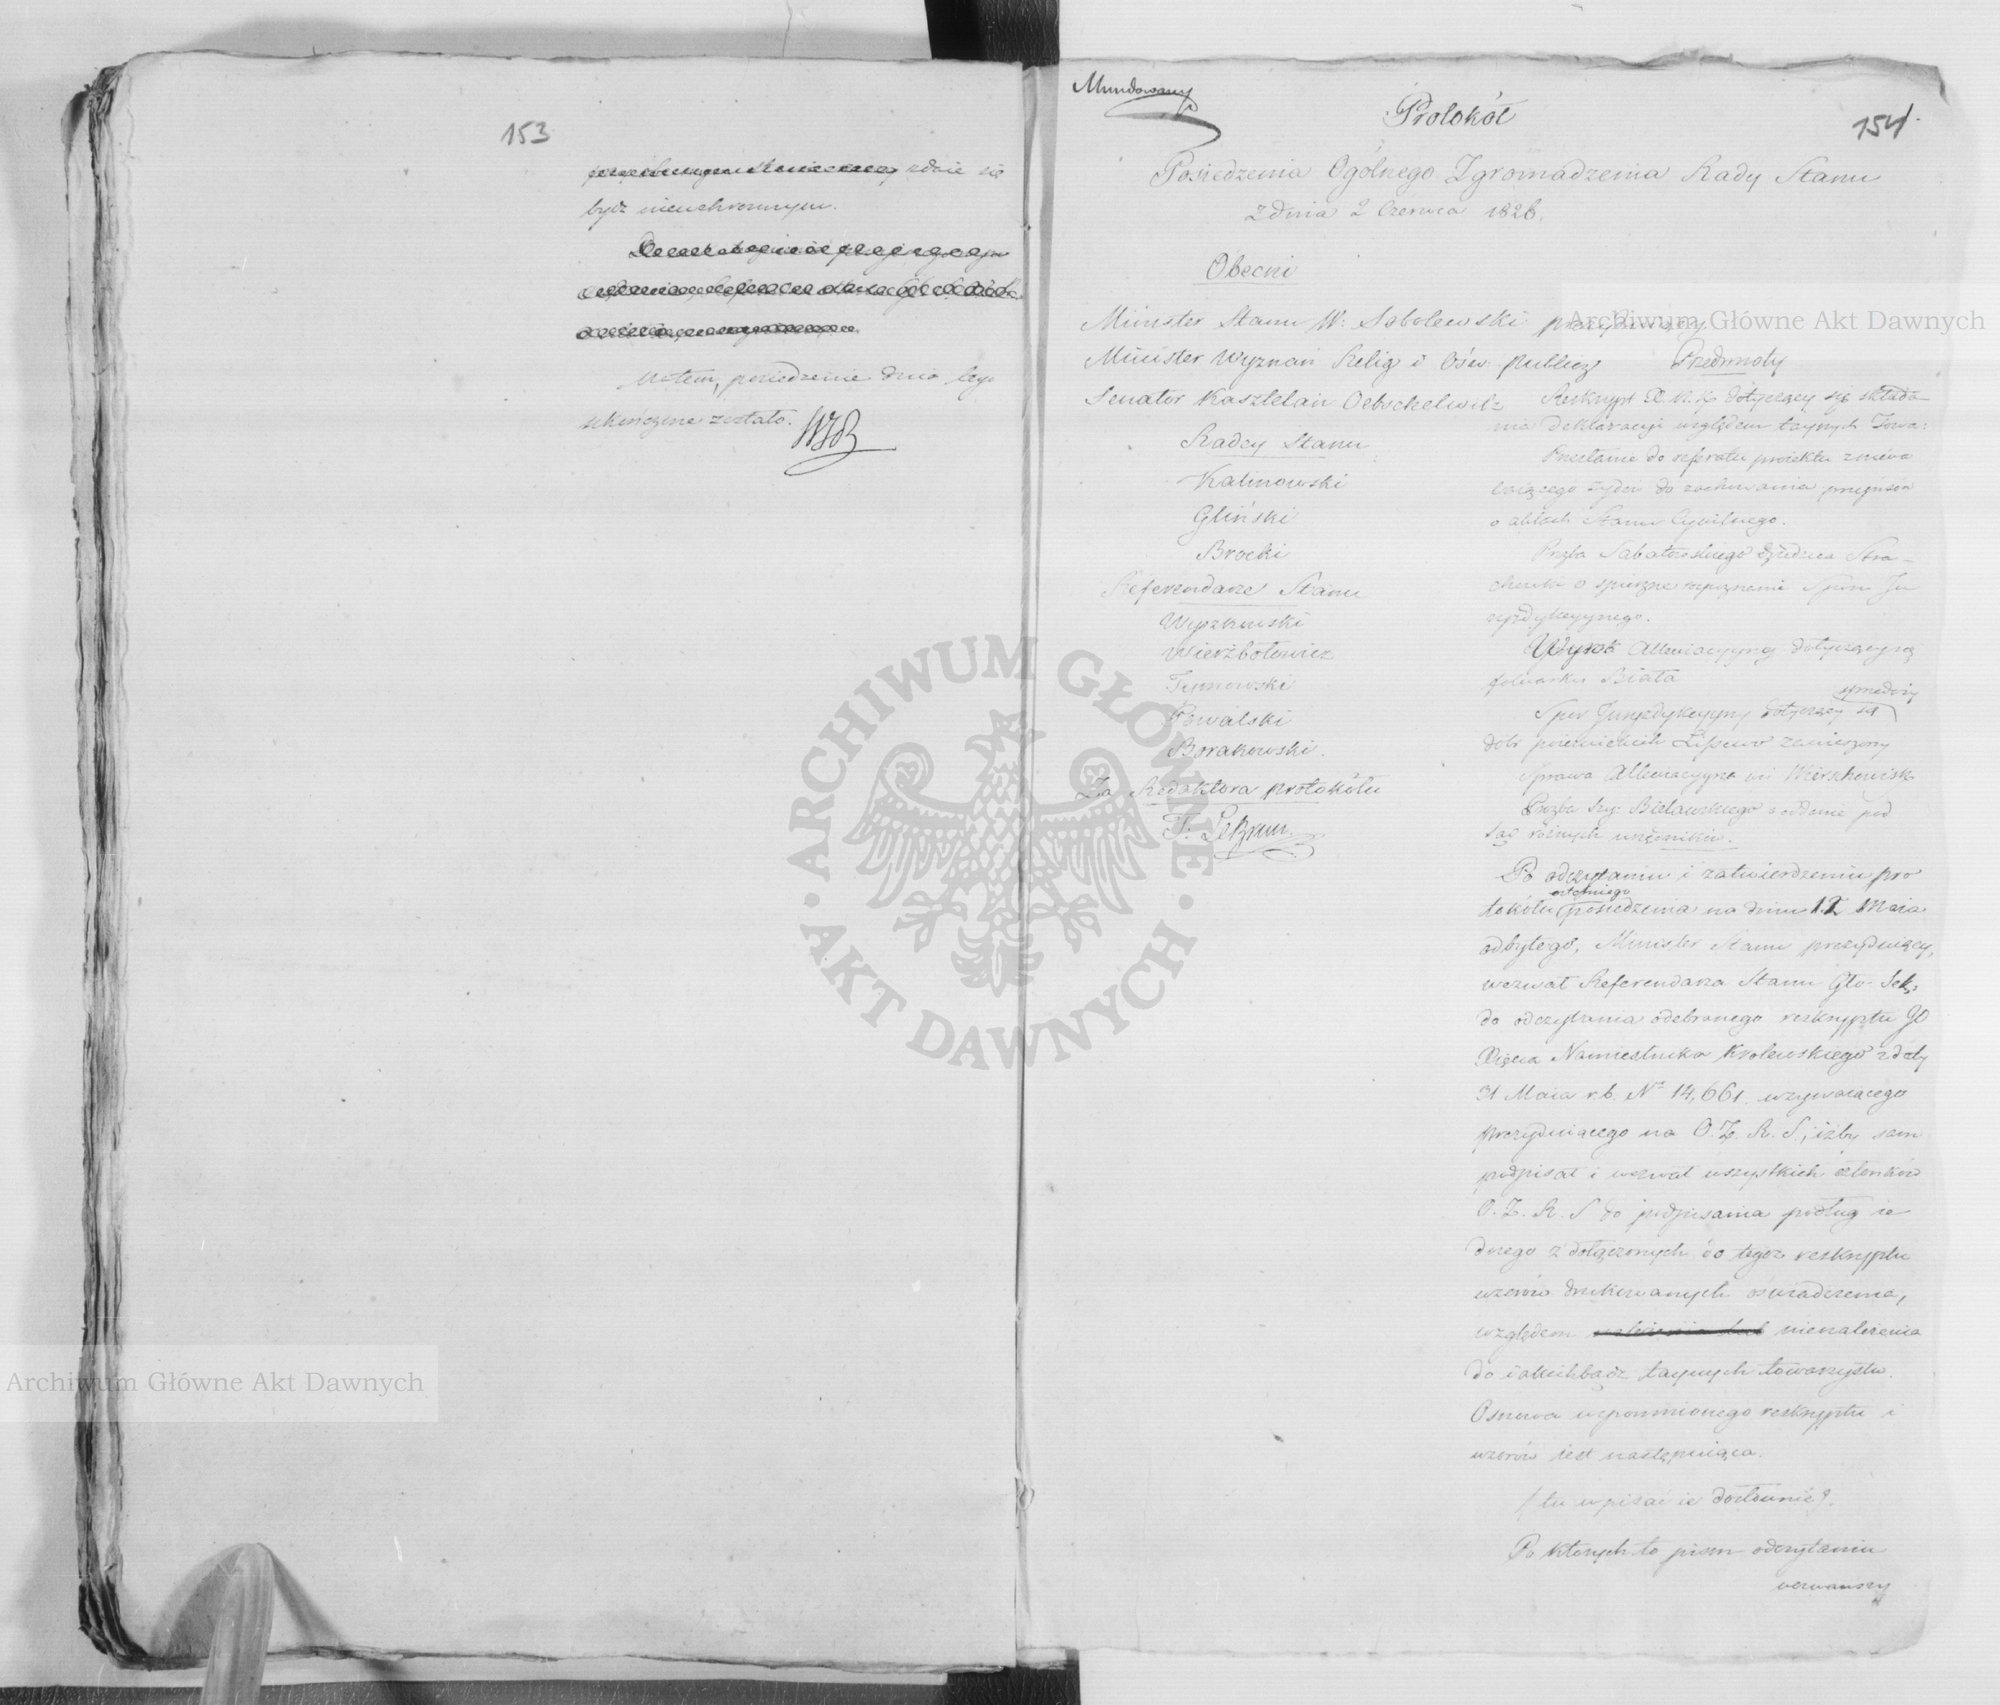 153
zdaie się
bydź nieuchronnym.
Na tem, posiedzenie dnia tego
ukończone zostało.
Mundowany
154
Protokół
Posiedzenia Ogólnego Zgromadzenia Rady Stanu
z dnia 2 Czerwca 1826.
Obecni
Minister Stanu W: Sobolewski prezyduiący
Minister Wyznań Relig i Ośw: publicz
Senator Kasztelan Oebschelwitz
Radcy Stanu
Kalinowski
Gliński
Brocki
Referendarze Stanu
Wyszkowski
Wierzbołowicz
Tymowski
Powalski
Borakowski.
Za Redaktora protokółu
Przedmioty
Reskrypt X. N. K. dotyczący się składa-
nia deklaracyi względem taynych Towa:
Przesłanie do referatu proiektu zniewa
laiącego żydów do zachowania przepisów
o aktach Stanu Cywilnego.
Prozba Sabatowskiego dziedzica Stra-
o spieszne rozpoznanie Sporu Ju
ryzdykcyynego.
Wyrok Allewiacyyny dotyczący się
folwarku Biała
Spor Juryzdykcyyny dotyczący się sprzedaży
dobr poiezuickich zawieszony
Sprawa Allewiacyyna wsi
Prozba Xig: Bielawskiego o oddanie pod
Sąd różnych urzędników.
Po odczytaniu i zatwierdzeniu pro
tokółu ostatniego posiedzenia na dniu 12 Maia
odbytego, Minister Stanu prezyduiący,
wezwał Referendarza Stanu Gło- Sek:
do odczytania odebranego reskryptu JO
Xięcia Namiestnika Krolewskiego z daty
31 Maia r.b. Nº 14,661. wzywaiącego
prezyduiącego na O. Z. R. S; iżby sam
podpisał i wezwał wszystkich członków
O. Z. R. S do podpisania podług ie
dnego z dołączonych do tegoż reskryptu
wzorów drukowanych oświadczenia,
względem nienależenia
do iakichbądź taynych towarzystw.
Osnowa wspomnionego reskryptu i
wzorów iest następuiąca.
(tu wpisać ie dosłownie).
Po których to pism odczytaniu
wezwawszy
Archiwum Główne Akt Dawnych
Archiwum Główne Akt Dawnych
ARCHIWUM GŁÓWNE · AKT DAWNYCH ·